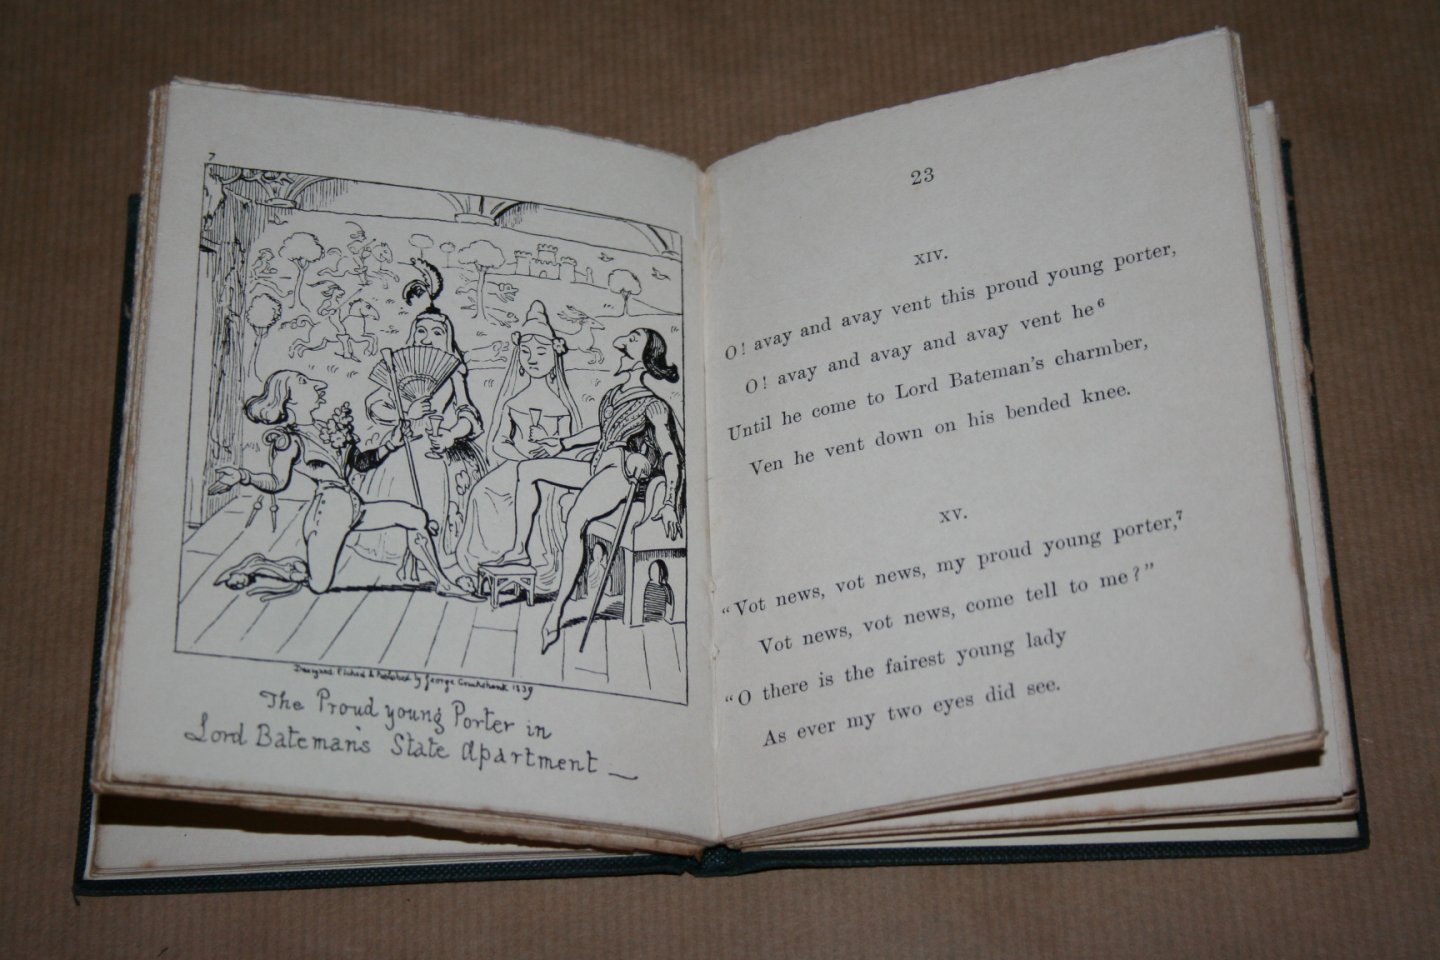 7
Designed Etched & Published by George Cruikshank 1839
The Proud young Porter in
Lord Bateman's State Apartment —
23
XIV.
O! avay and avay vent this proud young porter,
O! avay and avay and avay vent he⁶
Until he come to Lord Bateman's charmber,
Ven he vent down on his bended knee.
XV.
“Vot news, vot news, my proud young porter,⁷
Vot news, vot news, come tell to me?”
“O there is the fairest young lady
As ever my two eyes did see.